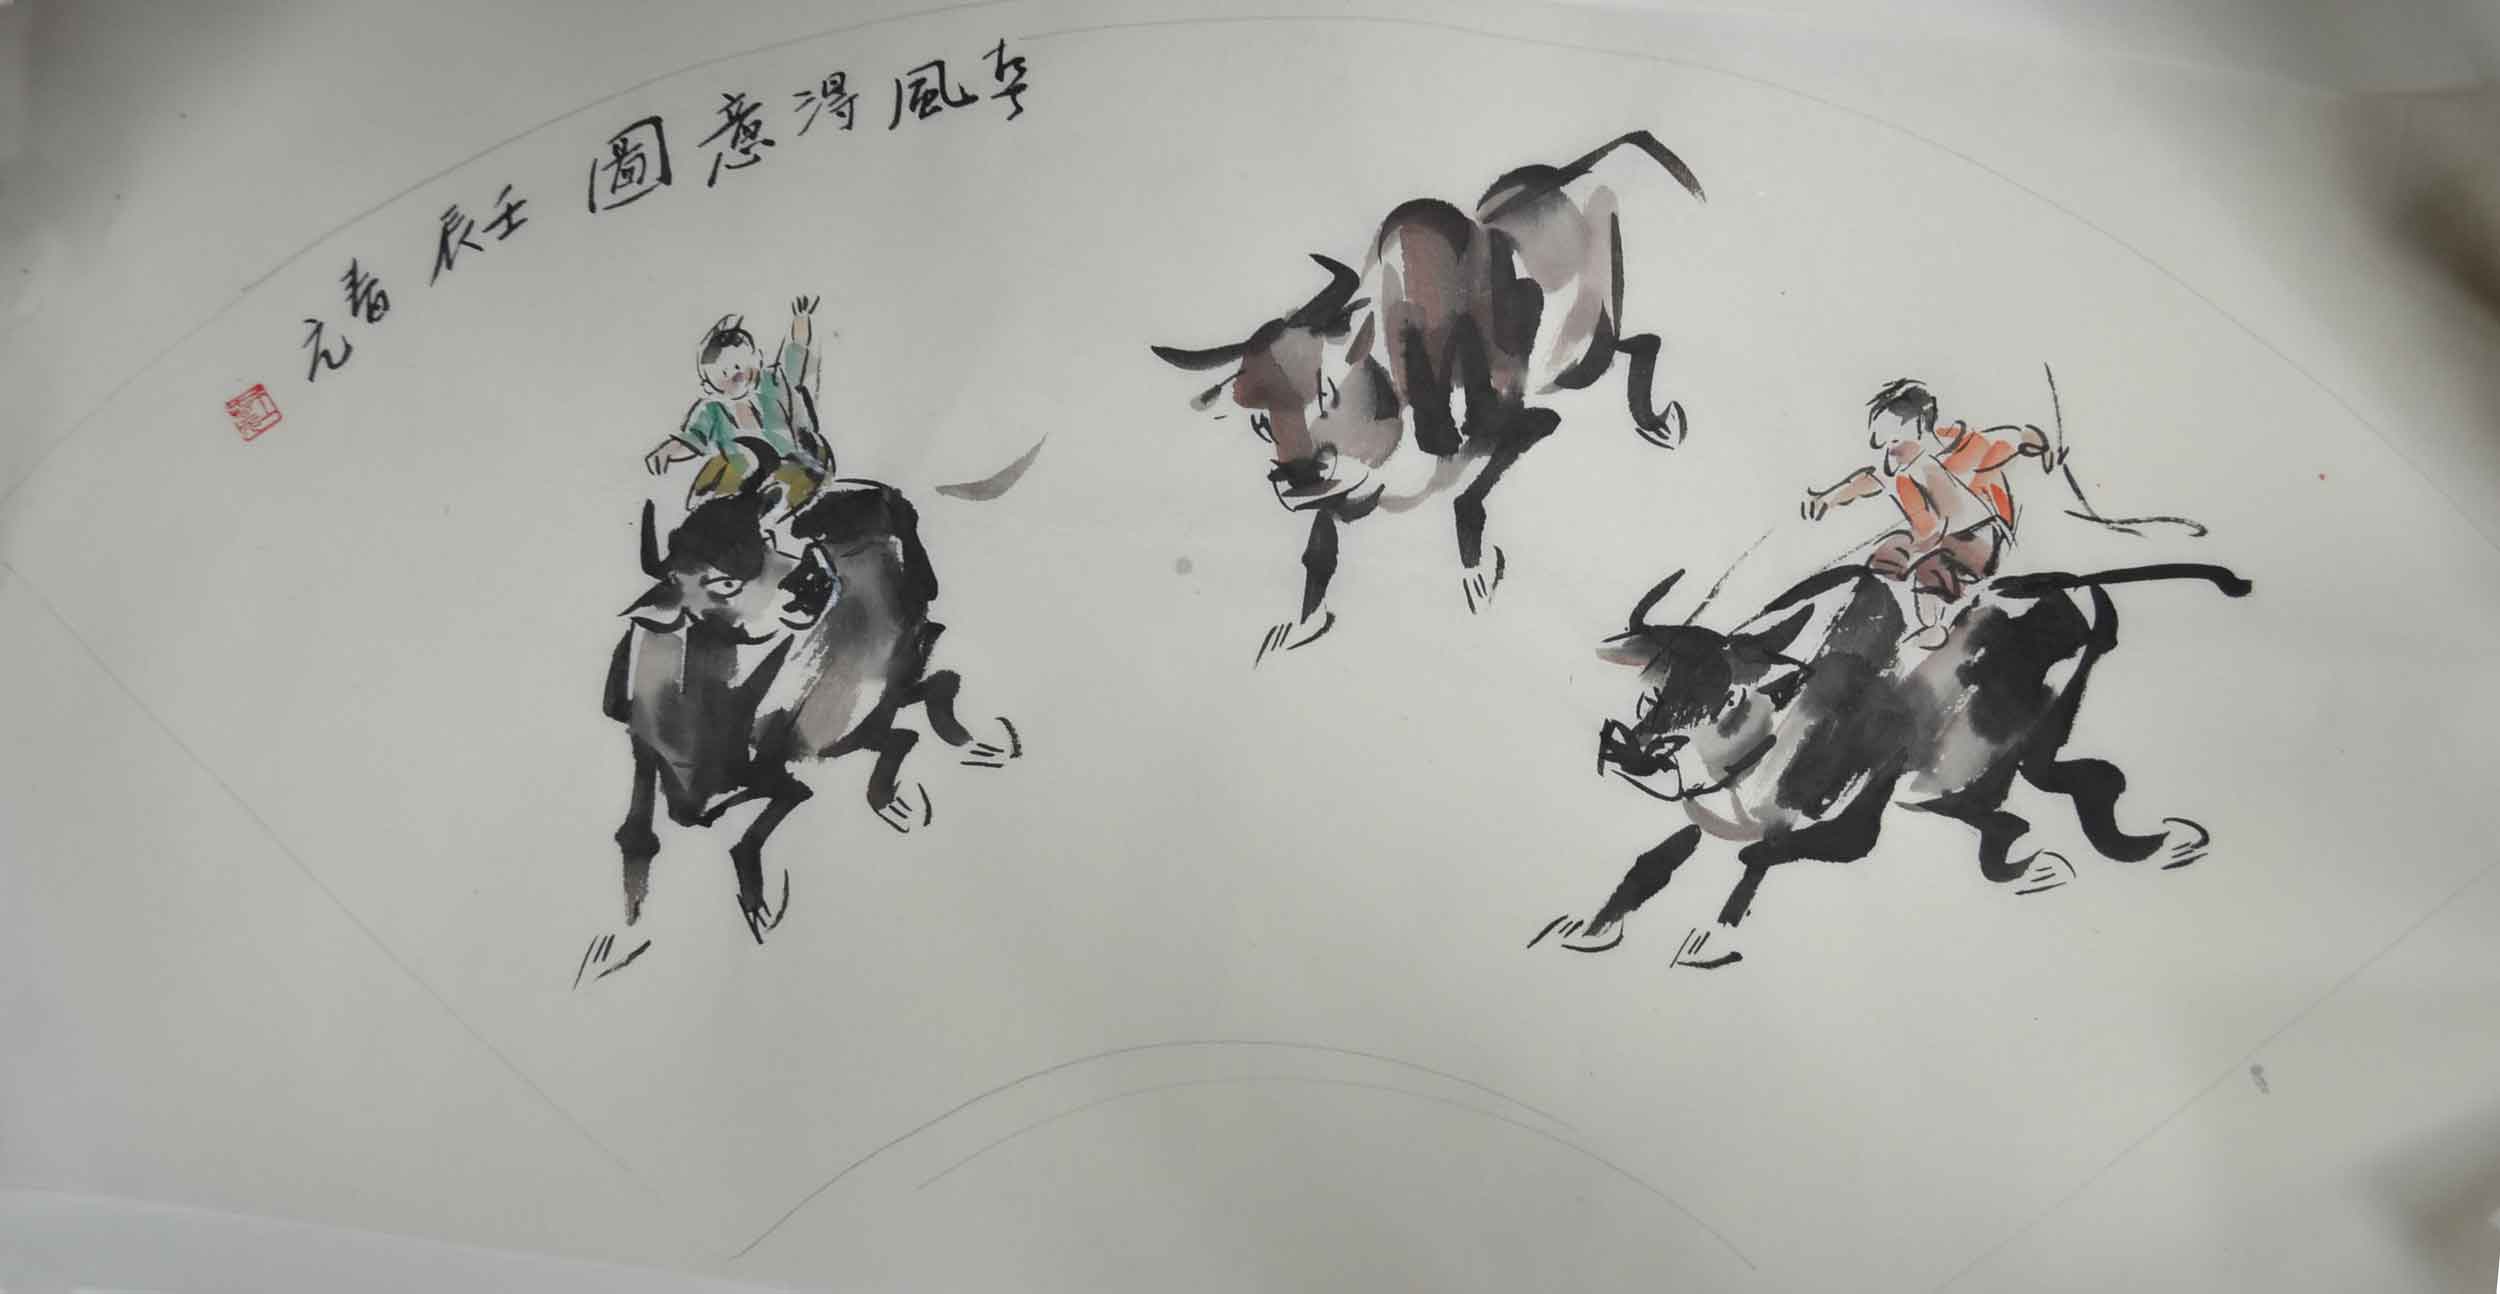 春風得意圖 壬辰 春元